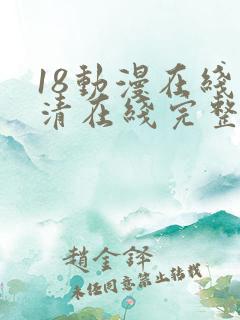 18動漫在綫
清在綫完整
趙金鐸
未經同意禁止轉載